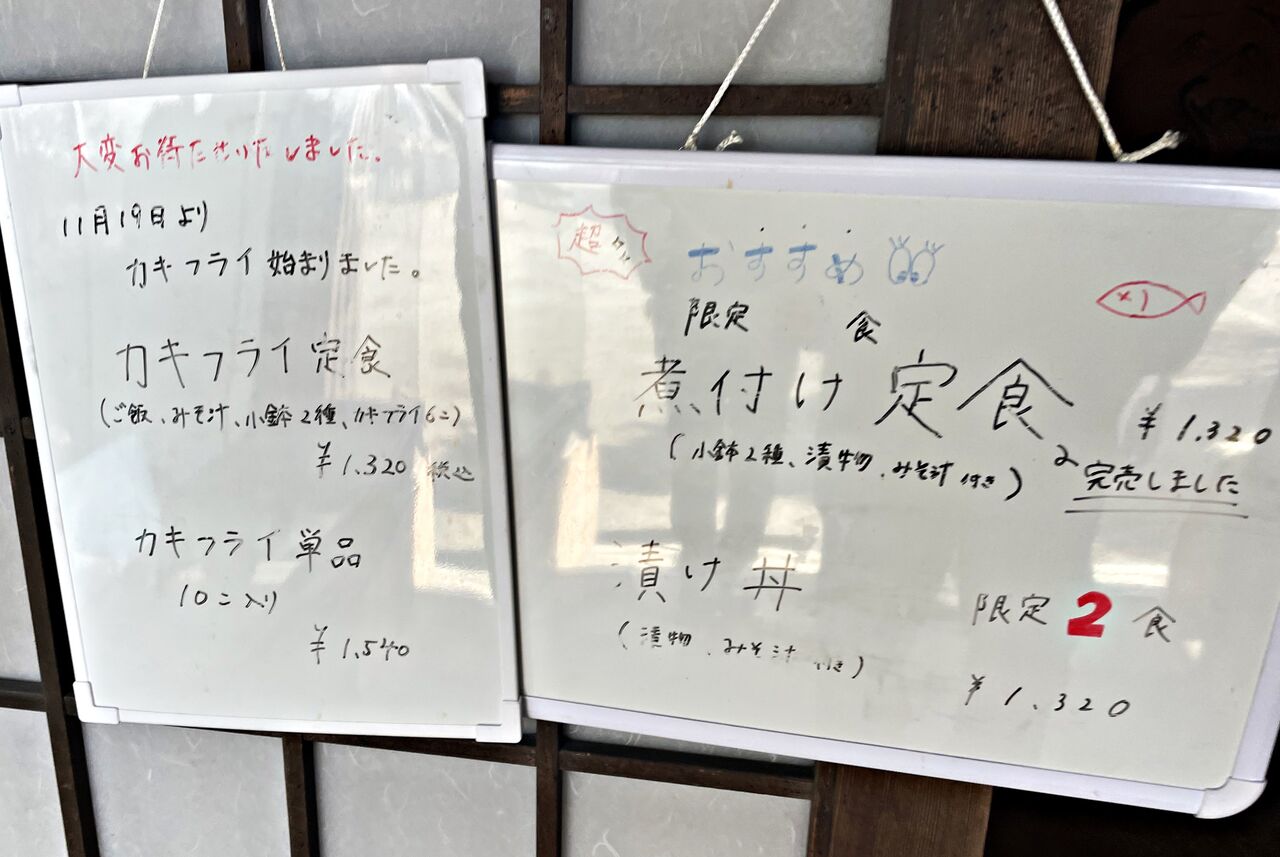 大変お待たせいたしました。
11月19日より
カキフライ始まりました。
カキフライ定食
(ご飯、みそ汁、小鉢2種、カキフライ6こ)
¥1.320 税込
カキフライ単品
10こ入り
¥1.540
超
おすすめ
限定 食
煮付け定食
¥1.320
(小鉢2種、漬物、みそ汁付き)
完売しました
漬け丼
限定2食
(漬物、みそ汁付き)
¥1.320